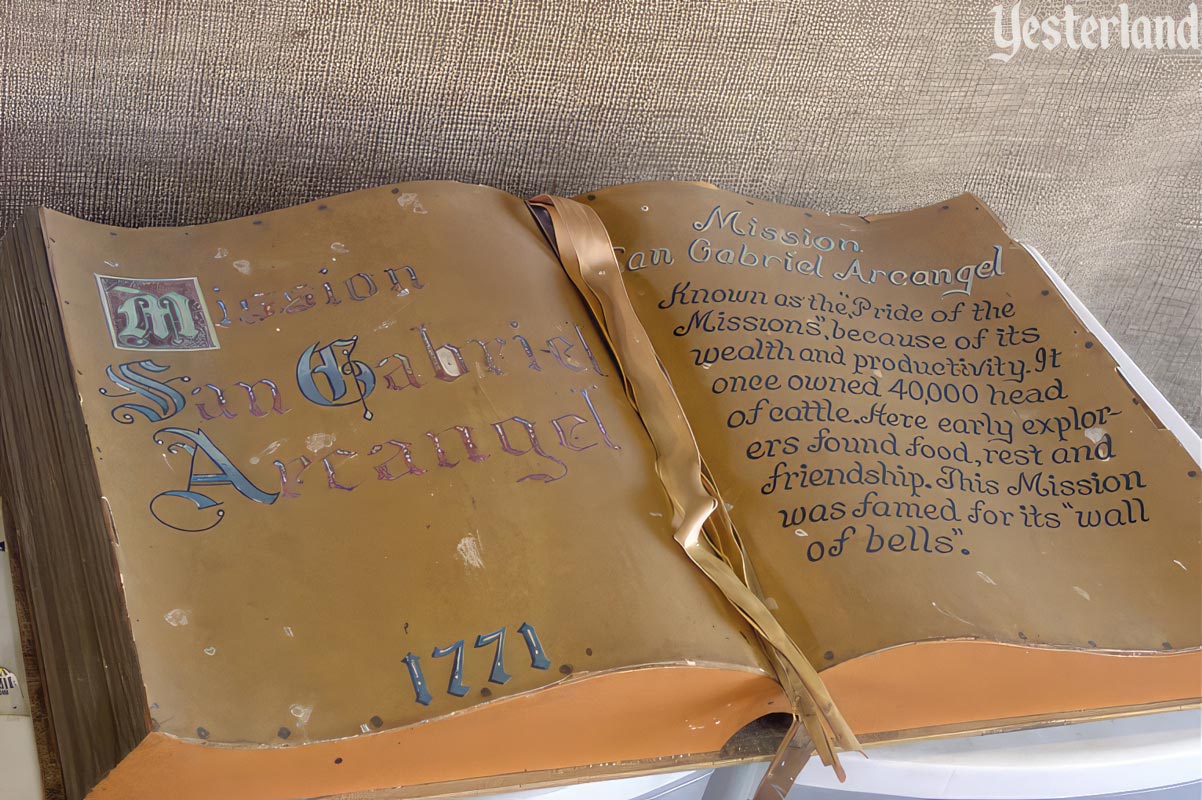 Yesterland
Mission
San Gabriel
Arcangel
1771
Mission
San Gabriel Arcangel
Known as the "Pride of the
Missions", because of its
wealth and productivity. It
once owned 40,000 head
of cattle. Here early explor-
ers found food, rest and
friendship. This Mission
was famed for its "wall
of bells".